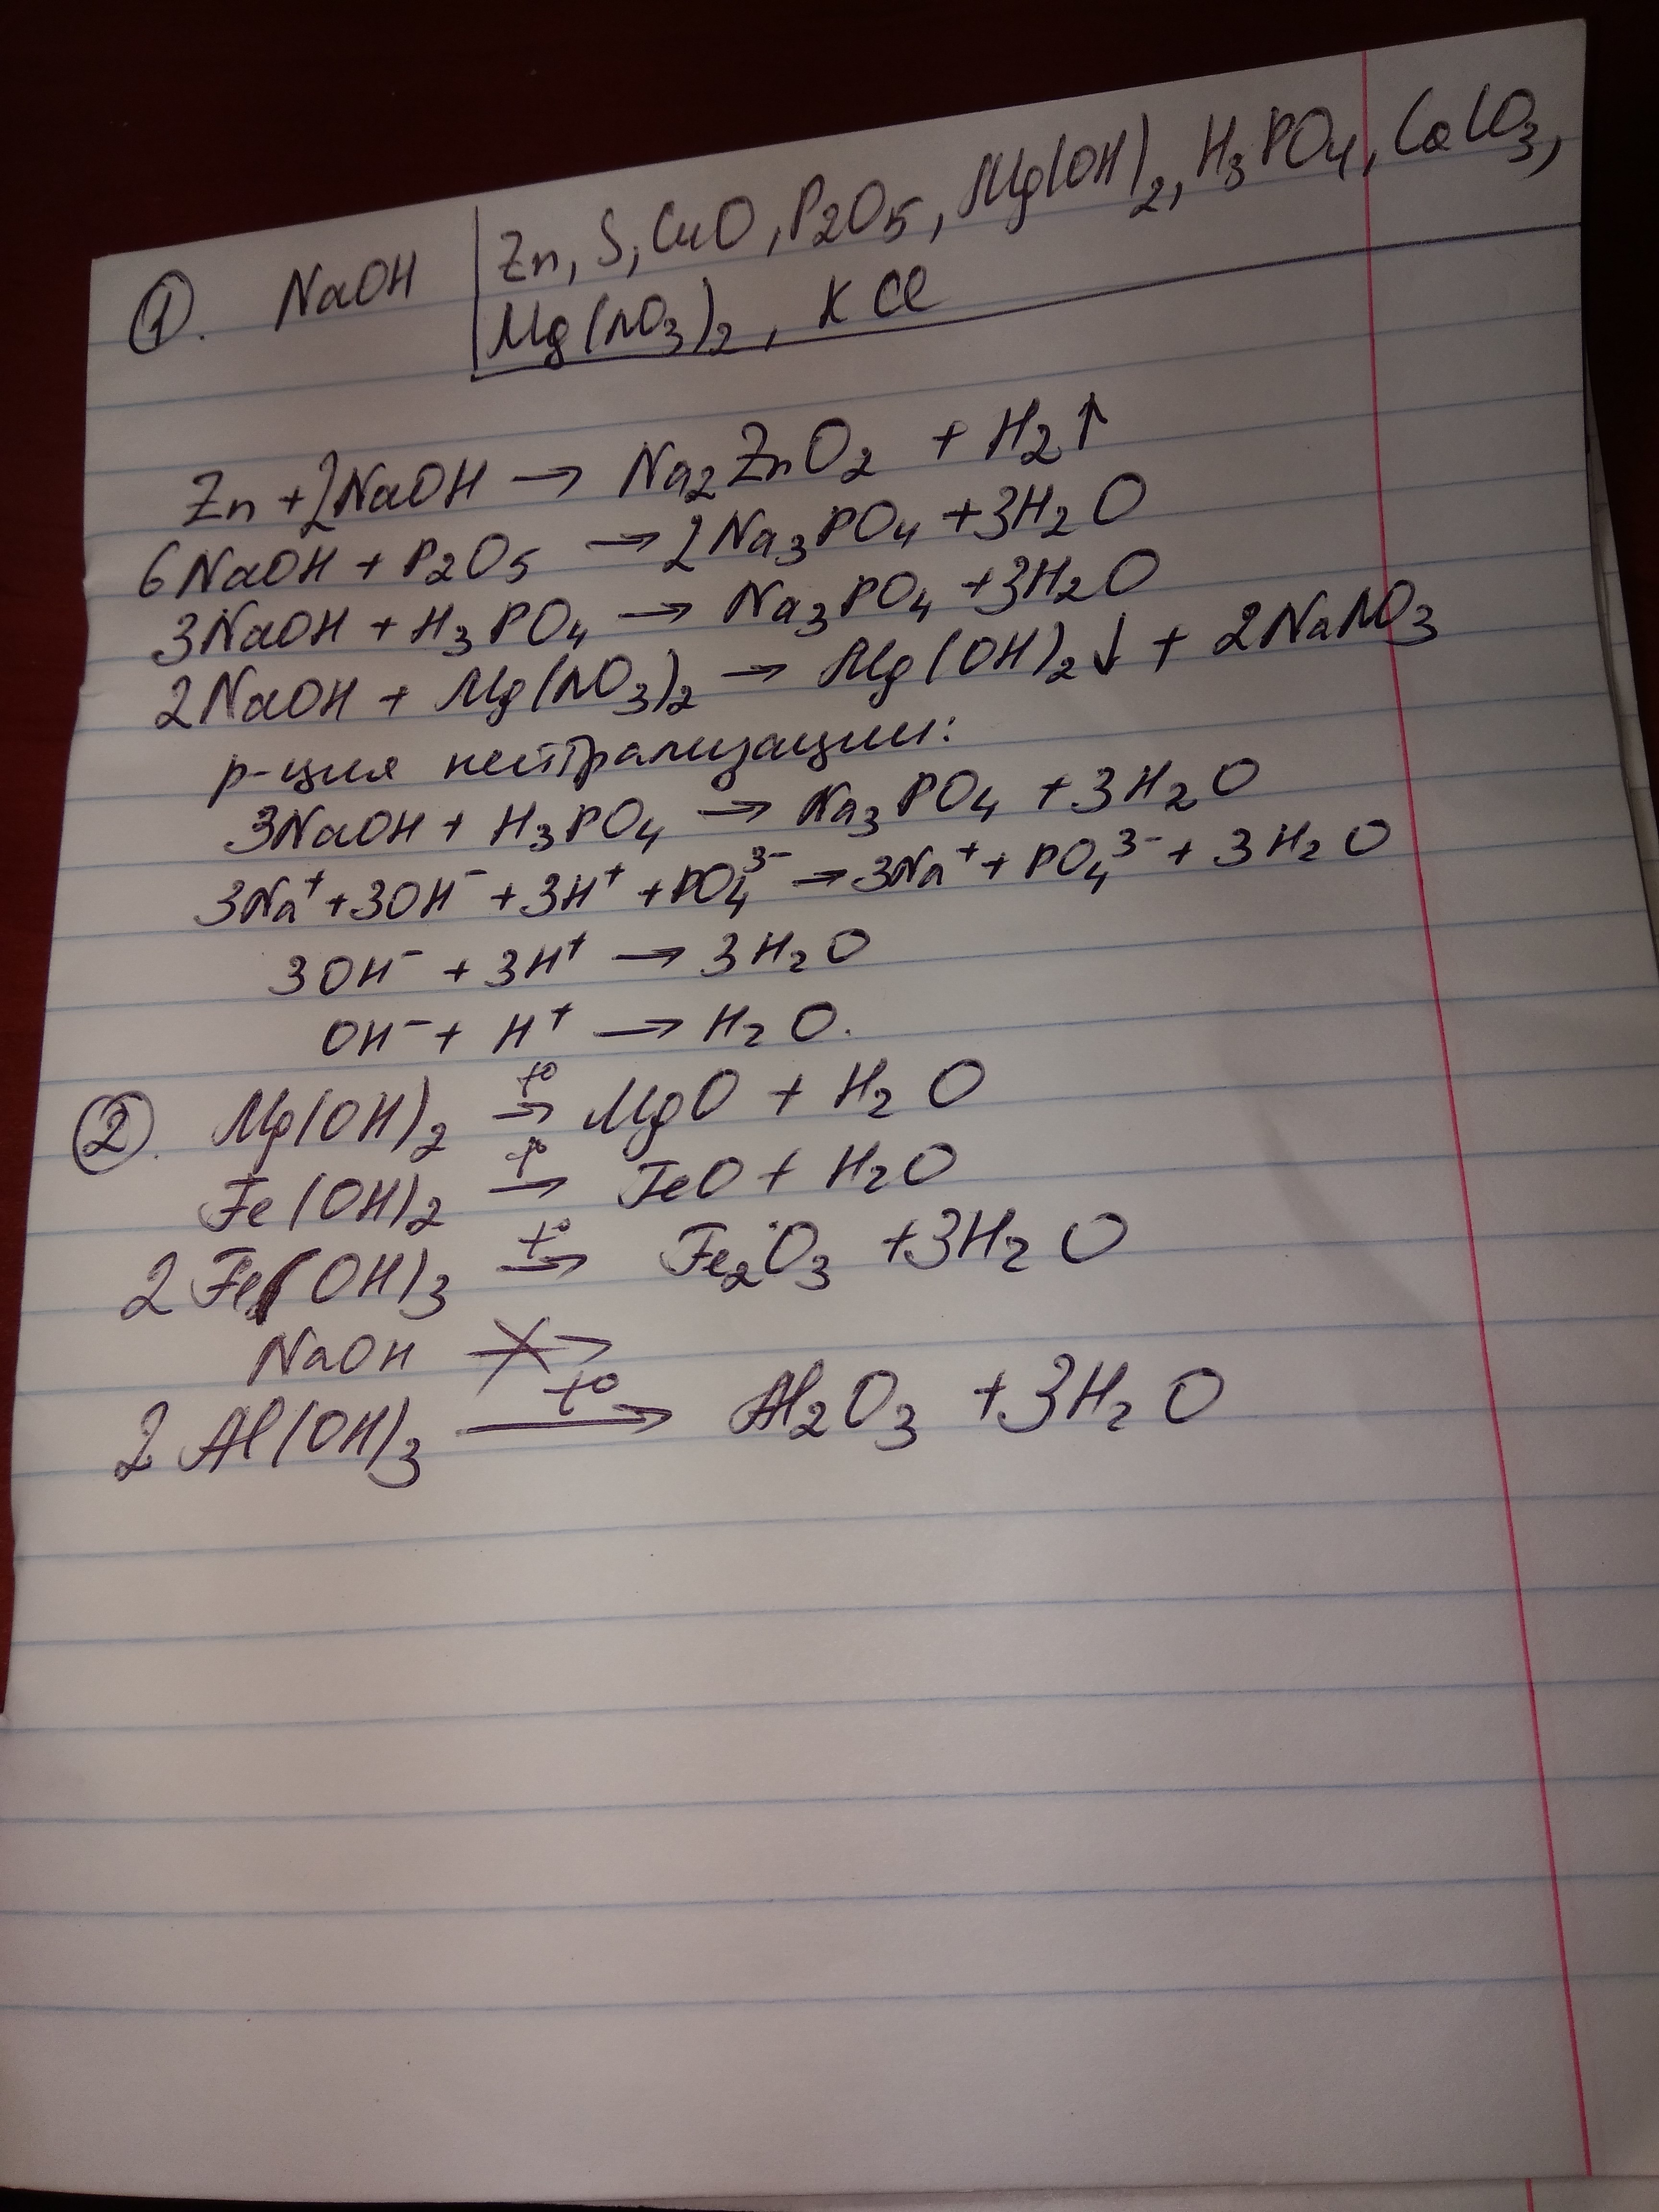 ①. NaOH | Zn, S, CuO, P₂O₅, Mg(OH)₂, H₃PO₄, CaCO₃,
Mg(NO₃)₂, KCl
Zn + 2NaOH → Na₂ZnO₂ + H₂↑
6NaOH + P₂O₅ → 2Na₃PO₄ + 3H₂O
3NaOH + H₃PO₄ → Na₃PO₄ + 3H₂O
2NaOH + Mg(NO₃)₂ → Mg(OH)₂↓ + 2NaNO₃
р-ция нейтрализации:
3NaOH + H₃PO₄ → Na₃PO₄ + 3H₂O
3Na⁺ + 3OH⁻ + 3H⁺ + PO₄³⁻ → 3Na⁺ + PO₄³⁻ + 3H₂O
3OH⁻ + 3H⁺ → 3H₂O
OH⁻ + H⁺ → H₂O.
②. Mg(OH)₂ →(t°) MgO + H₂O
Fe(OH)₂ →(t°) FeO + H₂O
2Fe(OH)₃ →(t°) Fe₂O₃ + 3H₂O
NaOH ↛
2Al(OH)₃ →(t°) Al₂O₃ + 3H₂O